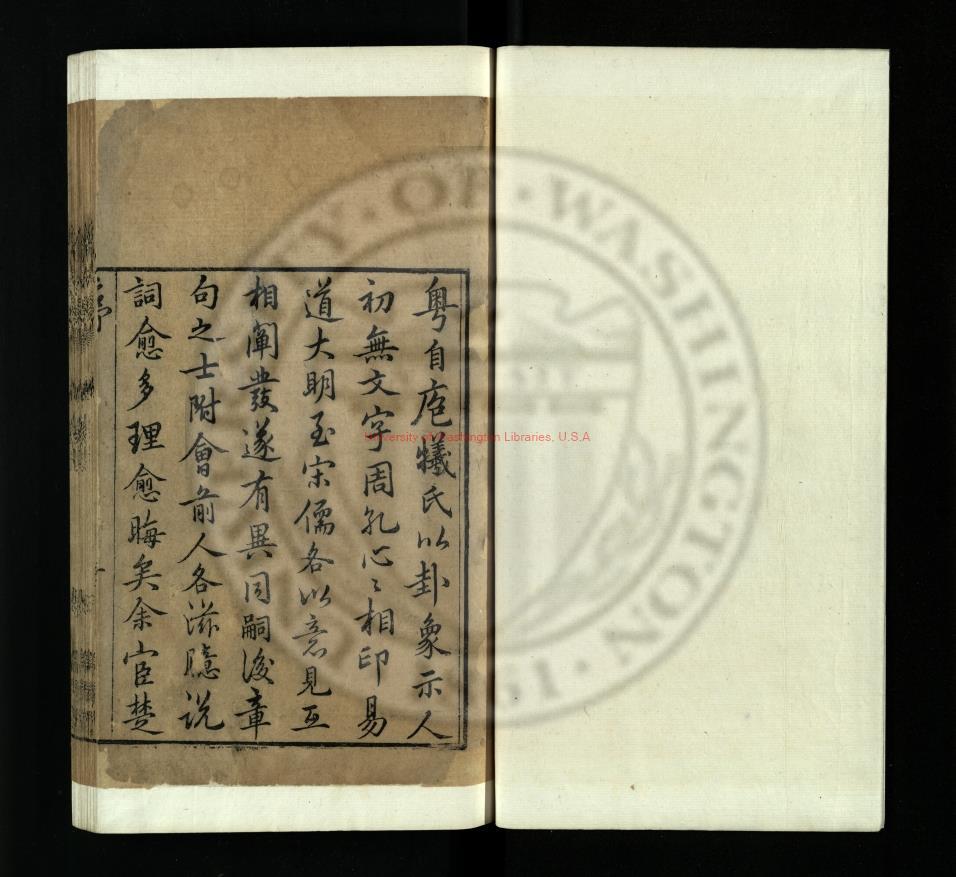 粤自庖犧氏以卦象示人
初無文字周孔心〻相印易
道大明至宋儒各以意見互
相闡發遂有異同嗣後章
句之士附會前人各滋臆说
詞愈多理愈晦矣余宦楚
序
University of Washington Libraries, U.S.A
UNIVERSITY · OF · WASHINGTON · 1861